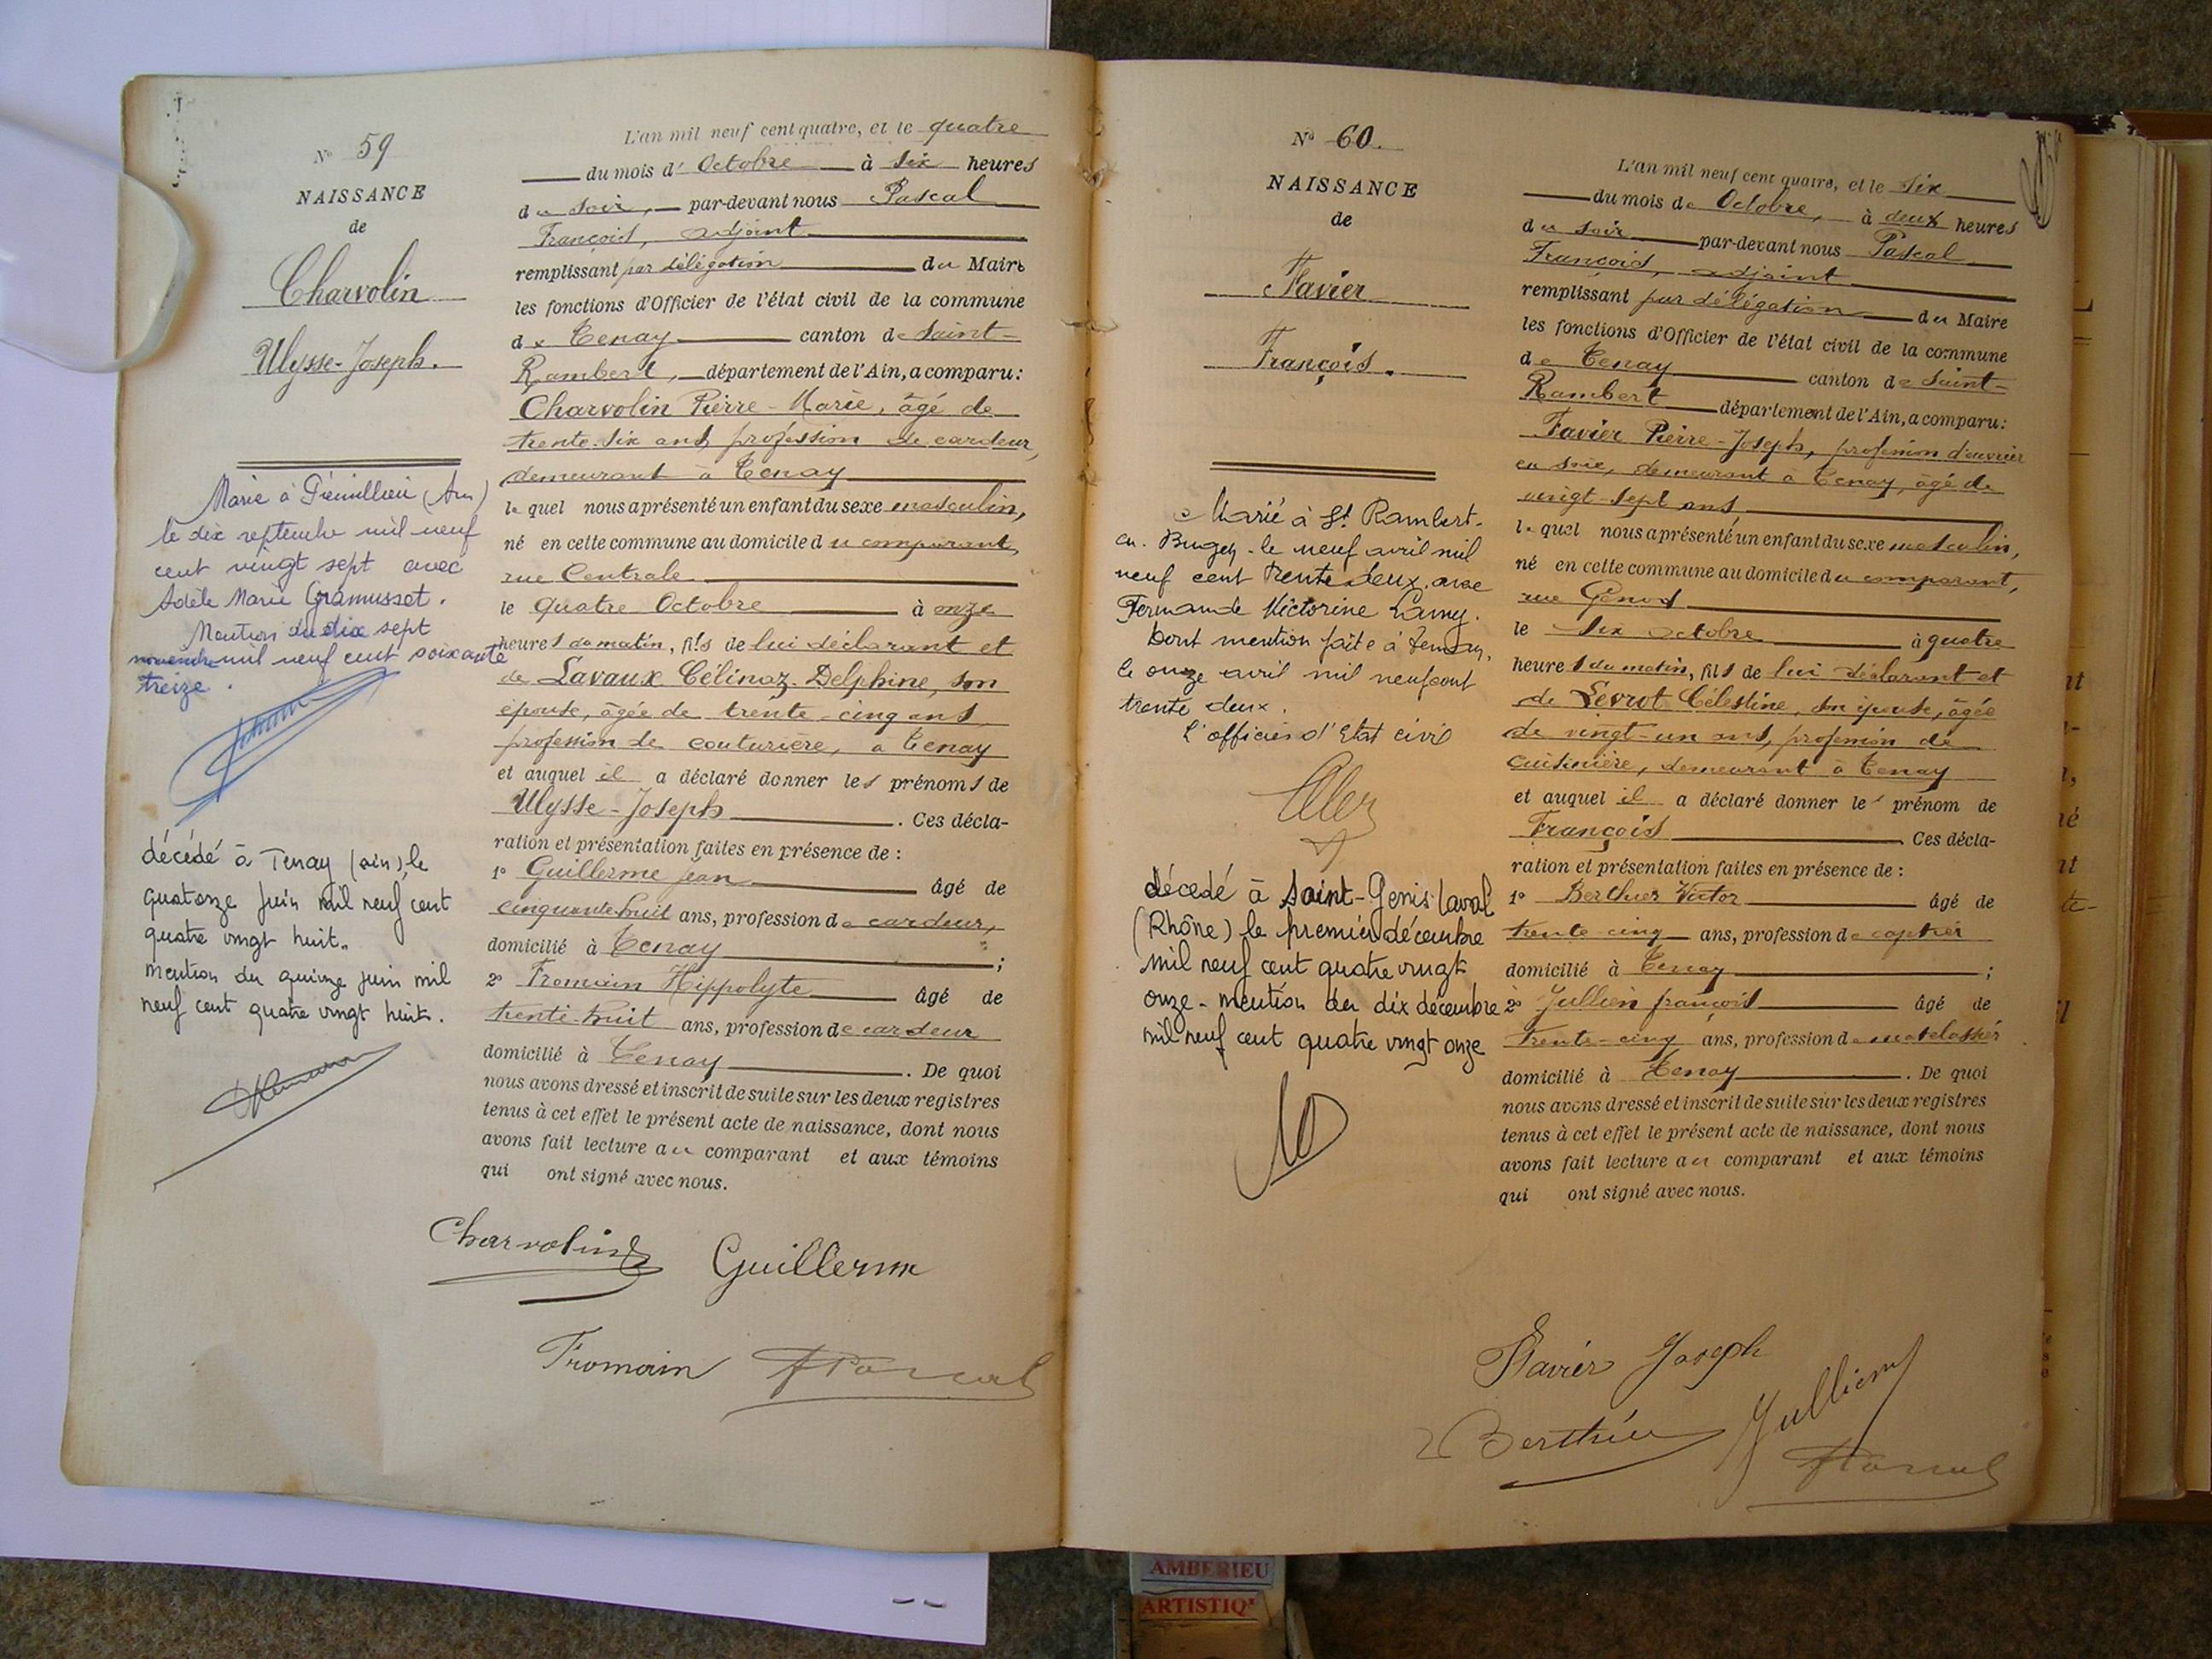 N° 59
NAISSANCE
de
Charvolin
Ulysse-Joseph.
Marié à Prémillieu (Ain)
le dix septembre mil neuf
cent vingt sept avec
Adèle Marie Gramusset.
Mention du dix sept
novembre mil neuf cent soixante
treize.
décédé à Tenay (ain), le
quatorze juin mil neuf cent
quatre vingt huit.
mention du quinze juin mil
neuf cent quatre vingt huit.
L'an mil neuf cent quatre, et le quatre
du mois d' Octobre à six heures
du soir, par-devant nous Pascal
François, adjoint
remplissant par délégation du Maire
les fonctions d'Officier de l'état civil de la commune
de Tenay canton de Saint-
Rambert, département de l'Ain, a comparu:
Charvolin Pierre-Marie, âgé de
trente-six ans, profession de cardeur,
demeurant à Tenay
lequel nous a présenté un enfant du sexe masculin,
né en cette commune au domicile du comparant,
rue Centrale
le quatre Octobre à onze
heures du matin, fils de lui déclarant et
de Lavaux Célinaz Delphine, son
épouse, âgée de trente-cinq ans
profession de couturière, à Tenay
et auquel il a déclaré donner les prénoms de
Ulysse-Joseph. Ces décla-
ration et présentation faites en présence de :
1° Guillerme Jean âgé de
cinquante huit ans, profession de cardeur,
domicilié à Tenay ;
2° Fromain Hippolyte âgé de
trente-huit ans, profession de cardeur
domicilié à Tenay. De quoi
nous avons dressé et inscrit de suite sur les deux registres
tenus à cet effet le présent acte de naissance, dont nous
avons fait lecture au comparant et aux témoins
qui ont signé avec nous.
Charvolin Guillerme
Fromain Pascal
N° 60.
NAISSANCE
de
Favier
François.
Marié à St Rambert-
en-Bugey - le neuf avril mil
neuf cent trente deux avec
Fernande Victorine Lamy.
Dont mention faite à Tenay,
le onze avril mil neuf cent
trente deux.
L'officier d'Etat civil
décedé à Saint-Genis-Laval
(Rhône) le premier décembre
mil neuf cent quatre vingt
onze - mention du dix décembre
mil neuf cent quatre vingt onze
L'an mil neuf cent quatre, et le six
du mois de Octobre, à deux heures
du soir par-devant nous Pascal
François, adjoint
remplissant par délégation du Maire
les fonctions d'Officier de l'état civil de la commune
de Tenay canton de Saint-
Rambert département de l'Ain, a comparu:
Favier Pierre-Joseph, profession d'ouvrier
en soie, demeurant à Tenay, âgé de
vingt-sept ans
lequel nous a présenté un enfant du sexe masculin,
né en cette commune au domicile du comparant,
rue Genod
le six octobre à quatre
heures du matin, fils de lui déclarant et
de Levrot Célestine, son épouse, âgée
de vingt-un ans, profession de
cuisinière, demeurant à Tenay
et auquel il a déclaré donner le prénom de
François Ces décla-
ration et présentation faites en présence de :
1° Berthier Victor âgé de
trente-cinq ans, profession de
domicilié à Tenay ;
2° Jullien François âgé de
trente-cinq ans, profession de matelassier
domicilié à Tenay. De quoi
nous avons dressé et inscrit de suite sur les deux registres
tenus à cet effet le présent acte de naissance, dont nous
avons fait lecture au comparant et aux témoins
qui ont signé avec nous.
Favier Joseph
Berthier Jullien
Pascal
AMBERIEU
ARTISTIQ